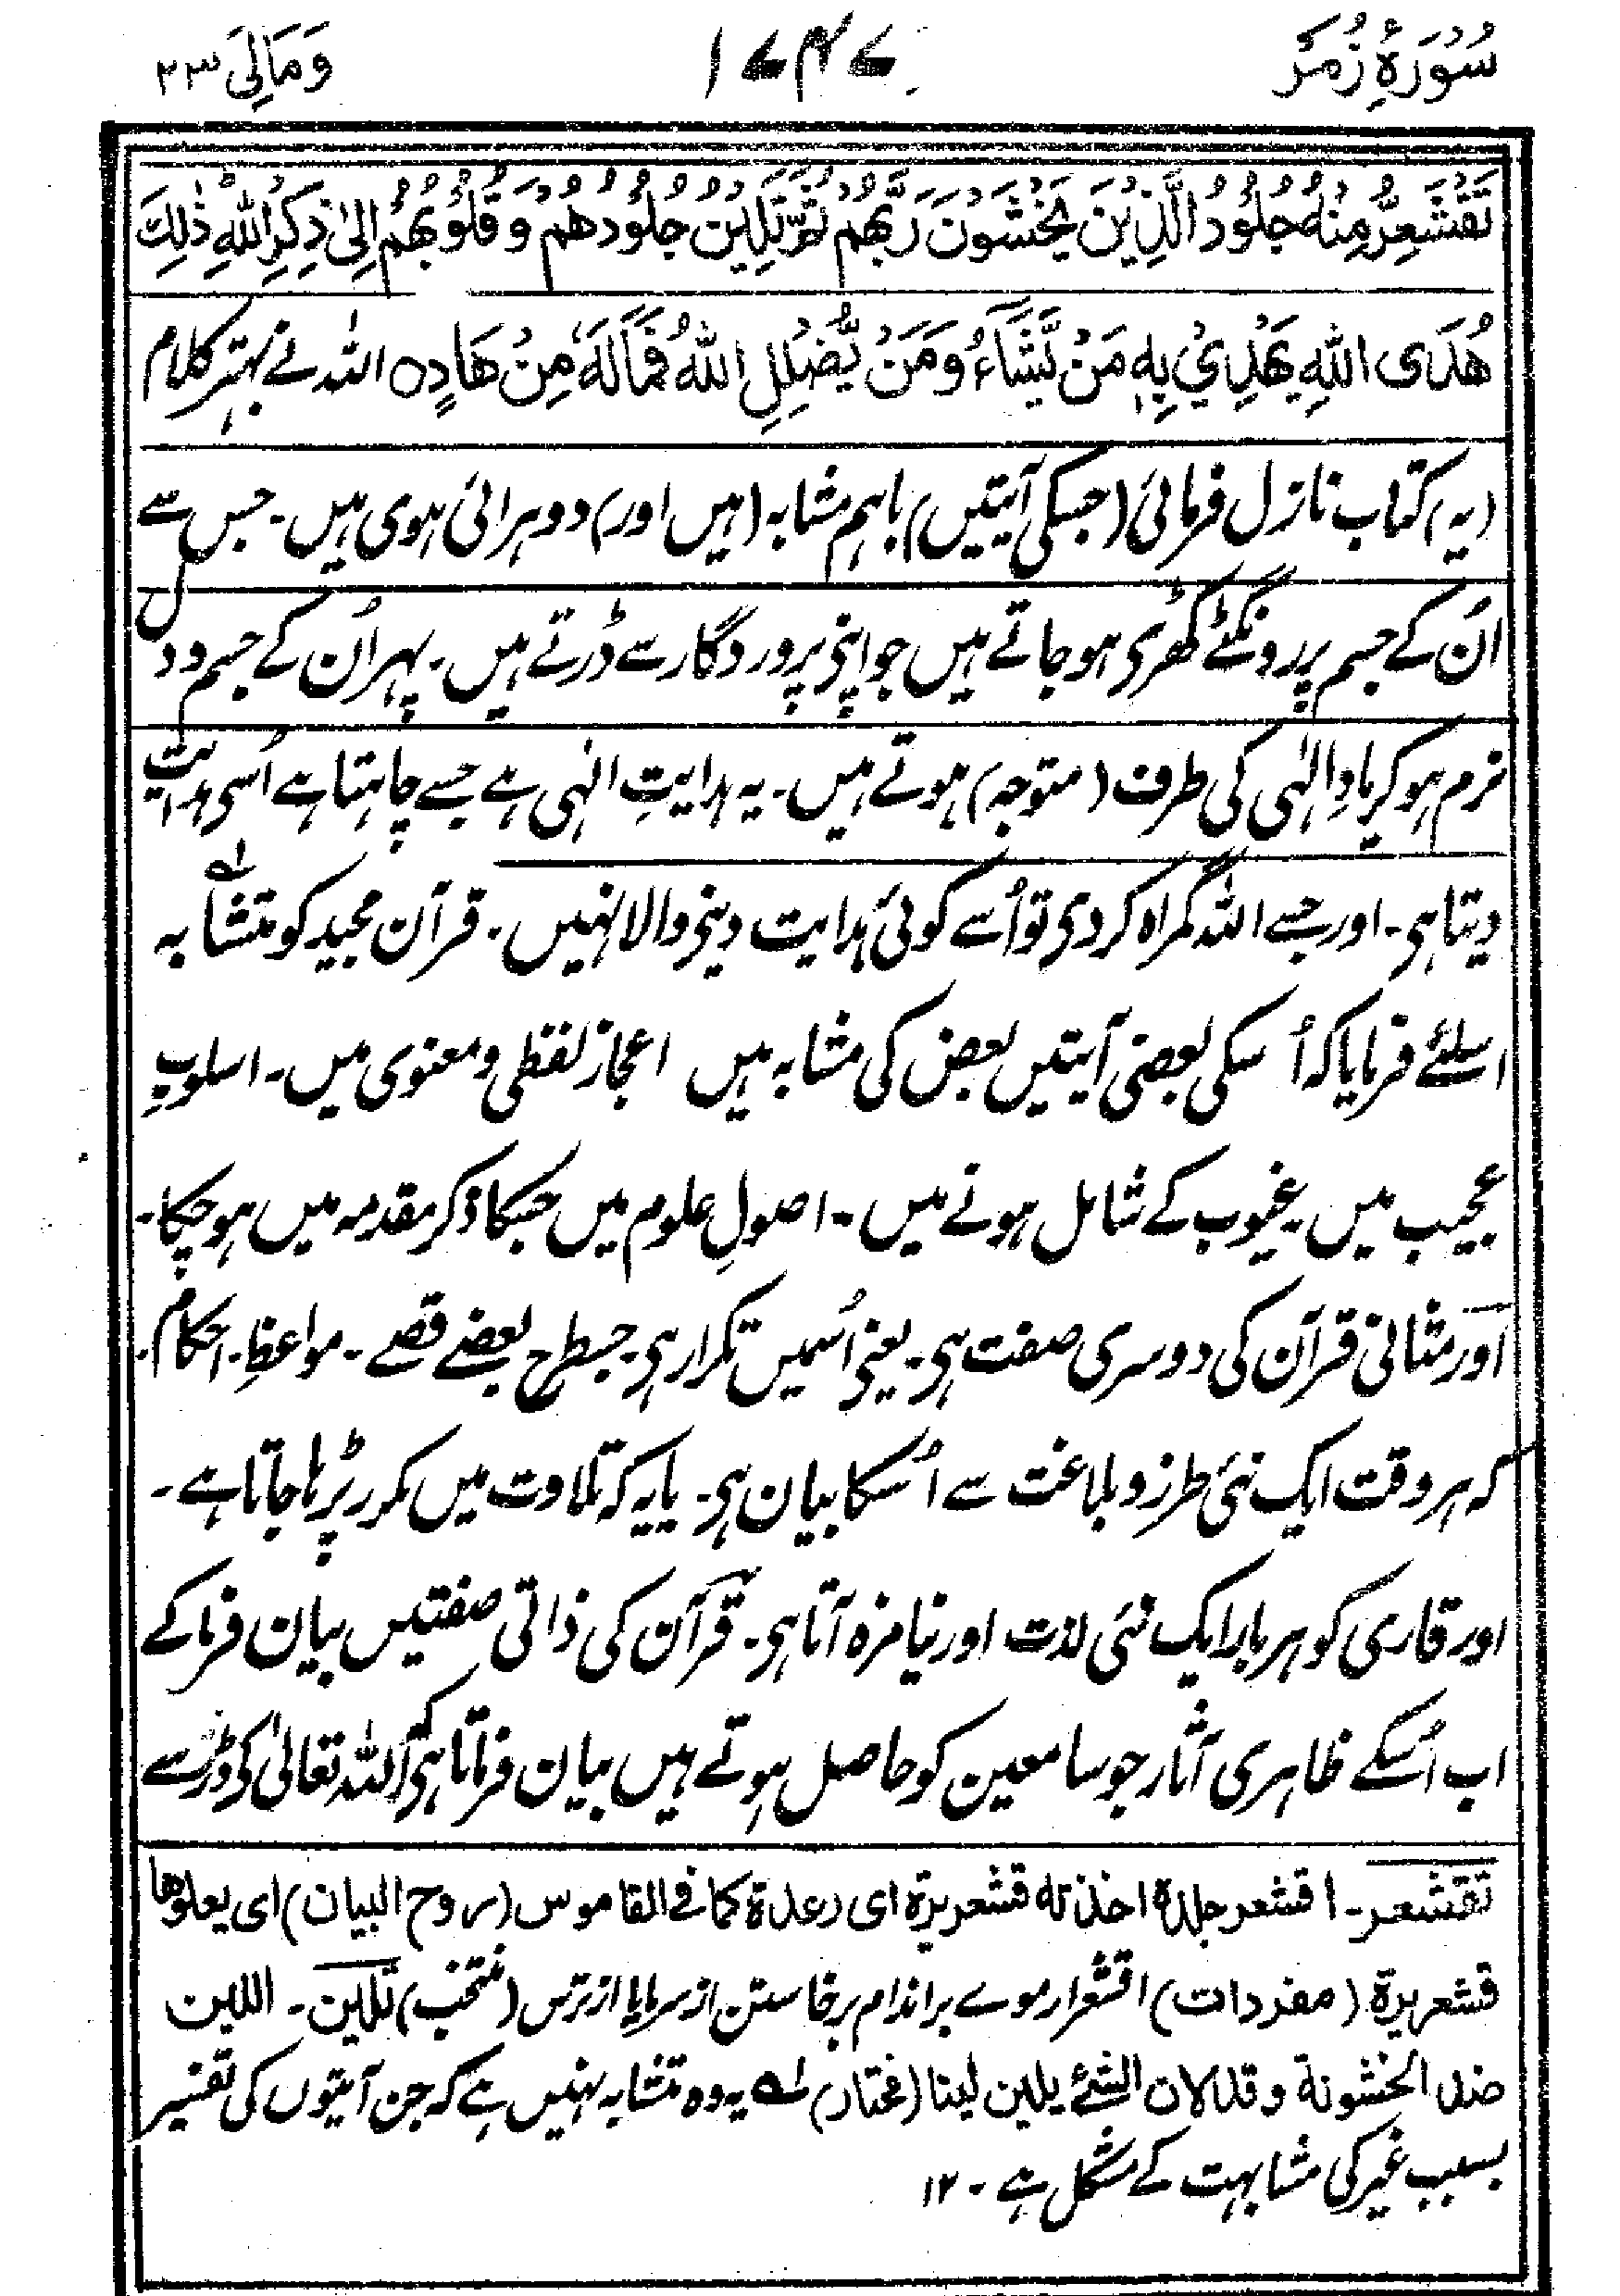 سُوْرَۂِ زُمَرْ ۱۷۴۷ وَمَالِیَ ۲۳
تَقْشَعِرُّ مِنْهُ جُلُوْدُ الَّذِیْنَ یَخْشَوْنَ رَبَّهُمْ ثُمَّ تَلِیْنُ جُلُوْدُهُمْ وَقُلُوْبُهُمْ اِلیٰ ذِكْرِ اللّٰهِ ذٰلِكَ
هُدَی اللّٰهِ یَهْدِیْ بِهٖ مَنْ یَّشَآءُ وَمَنْ یُّضْلِلِ اللّٰهُ فَمَالَهٗ مِنْ هَادٍ ہ اللہ نے بہتر کلام
(یہ) کتاب نازل فرمائی (جسکی آیتیں) باہم مشابہ (ہیں اور) دوہرائی ہوی ہیں۔ جس سے
اُن کے جسم پر رونگٹے کھڑی ہو جاتے ہیں جو اپنی پروردگار سے ڈرتے ہیں۔ پہر اُن کے جسم و دل
نرم ہو کر یادِ الٰہی کی طرف (متوجہ) ہوتے ہیں۔ یہ ہدایتِ الٰہی ہے جسے چاہتا ہے اُسی ہدایت
دیتا ہی۔ اور جسے اللہ گمراہ کر دی تو اُسے کوئی ہدایت دینی والا نہیں۔ قرآن مجید کو متشابہ ؎۱
اسلئے فرمایا کہ اُسکی بعضی آیتیں بعض کی مشابہ ہیں اعجاز لفظی و معنوی میں۔ اسلوبِ
عجیب میں۔ غیوب کے شامل ہونے میں۔ اصولِ علوم میں جسکا ذکر مقدمہ میں ہو چکا۔
اور مثانی قرآن کی دوسری صفت ہی۔ یعنی اُسمیں تکرار ہی۔ جسطرح بعضے قصے۔ مواعظ۔ احکام۔
کہ ہر وقت ایک نئی طرز و بلاغت سے اُسکا بیان ہی۔ یا یہ کہ تلاوت میں مکرر پڑہا جاتا ہے۔
اور قاری کو ہر بار ایک نئی لذت اور نیا مزہ آتا ہی۔ قرآن کی ذاتی صفتیں بیان فرما کے
اب اُسکے ظاہری آثار جو سامعین کو حاصل ہوتے ہیں بیان فرماتا ہی کہ اللہ تعالیٰ کی ڈر سے
تقشعر۔ اقشعر جلدہ اخذتہ قشعریرة ای رعدة کما فی القاموس (روح البیان) ای یعلوها
قشعریرة (مفردات) اقشعرار موے بر اندام برخاستن از سرما یا از ترس (منتخب) تلین۔ اللین
ضد الخشونة وقد لان الشئ یلین لینا (مختار) ؎۱ یہ وہ متشابہ نہیں ہے کہ جن آیتوں کی تفسیر
بسبب غیر کی مشابہت کے مشکل ہے۔ ۱۲